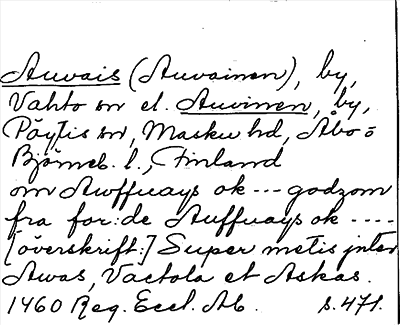 Auvais (Auvainen), by,
Vahto sn el. Auvinen, by,
Pöytis sn, Masku hd, Åbo o
Björneb. l., Finland
om Awffuays ok --- godzom
fra for:de Auffuays ok ----
[överskrift:] Super metis inter
Awas, Vactola et Askas.
1460 Reg. Eccl. Ab. s. 471.